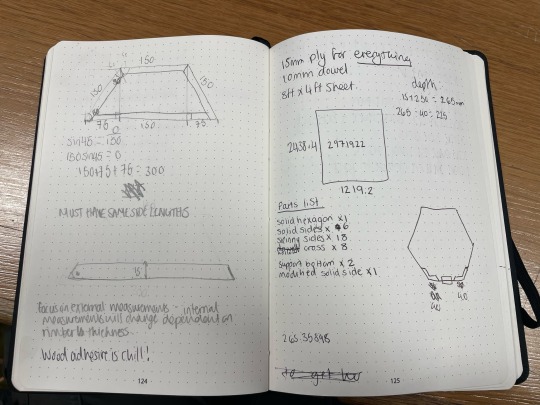 150
150
150
75
150
75
sin45 = 150
150sin45 = O
150+75+75 = 300
MUST HAVE SAME SIDE LENGTHS
15
focus on external measurements - internal
measurements will change dependent on
timber thickness.
Wood adhesive is chill!
124
15mm ply for everything
10mm dowel
8ft x 4ft sheet.
depth
15+250 = 265mm
265 - 40 = 225
2438.4
2971922
1219.2
Parts list
solid hexagon x 1
solid sides x 6
skinny sides x 18
cross x 8
support bottom x 2
modified solid side x 1
40
40
265.35898
125